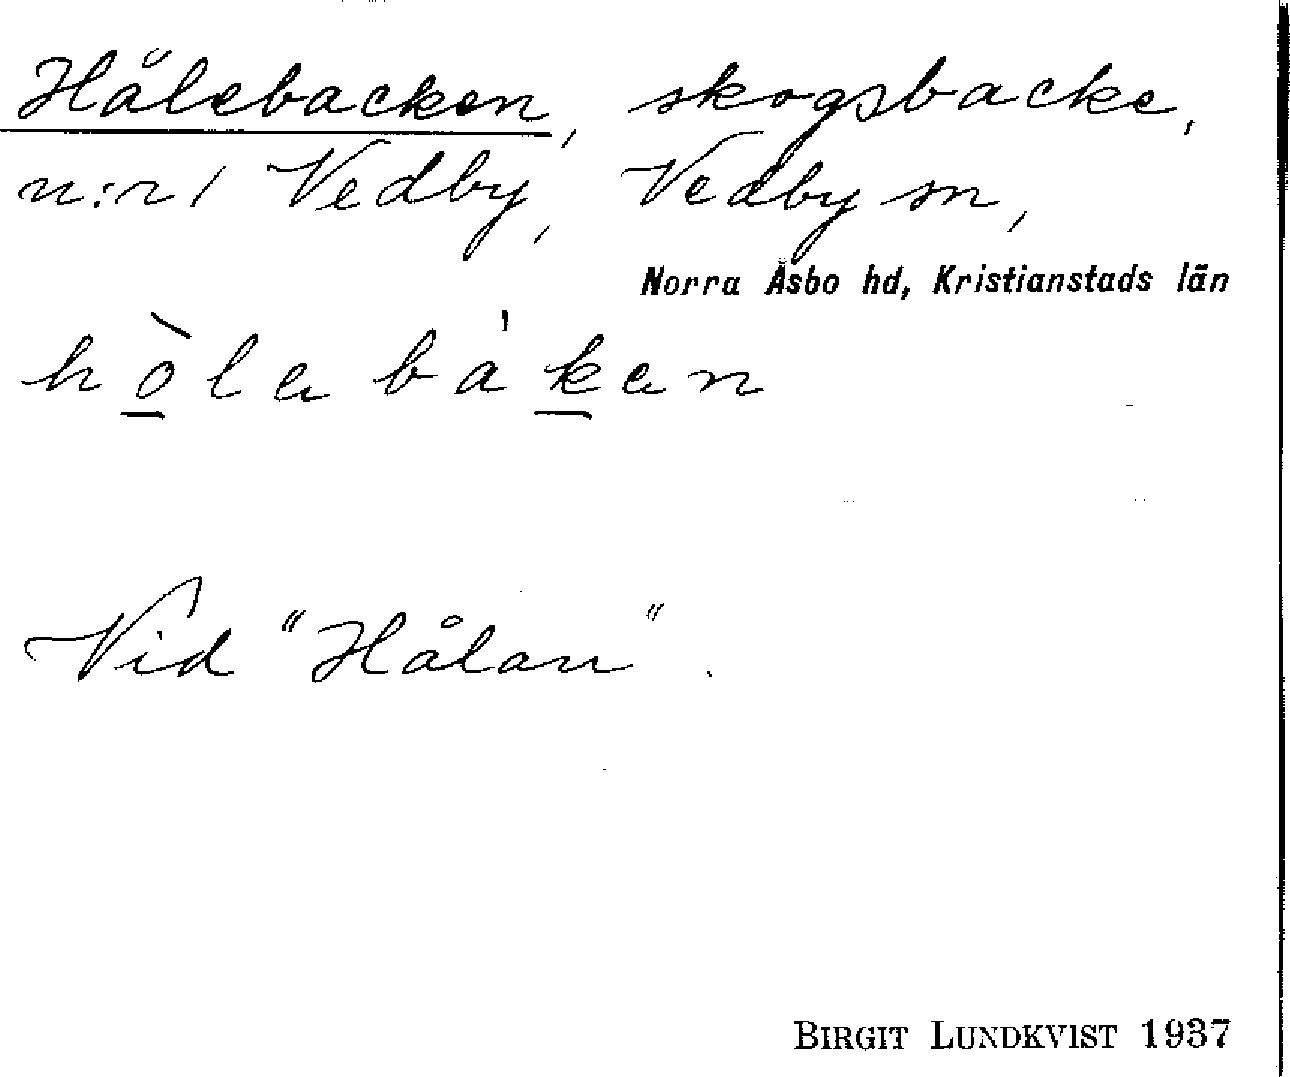 Hålebacken, skogsbacke,
n:r 1 Vedby, Vedby sn,
Norra Åsbo hd, Kristianstads län
hòlabákan
Vid "Hålan".
BIRGIT LUNDKVIST 1937